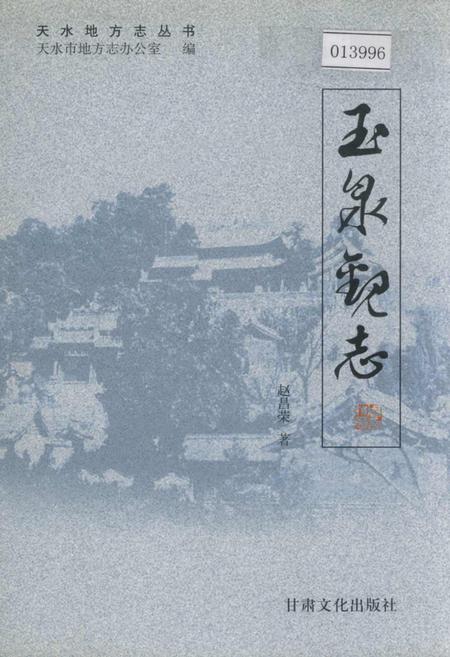 天水地方志丛书
天水市地方志办公室 编
013996
玉泉观志
赵昌荣 著
甘肃文化出版社